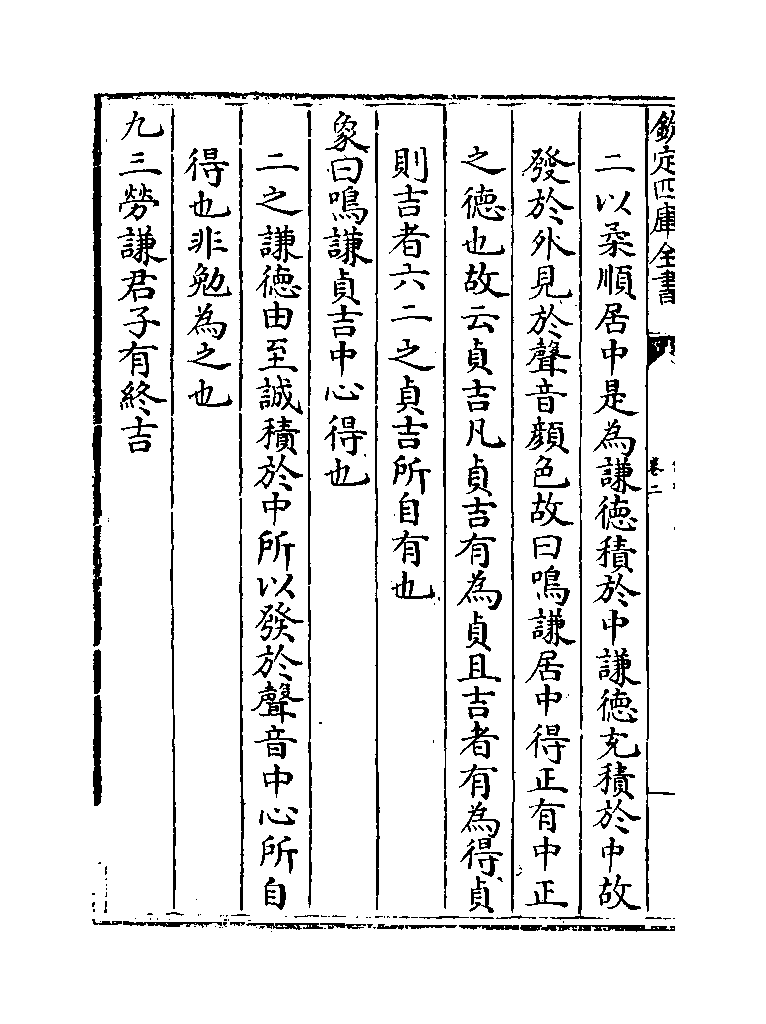 欽定四庫全書
卷二
二以柔順居中是為謙德積於中謙德充積於中故
發於外見於聲音顔色故曰鳴謙居中得正有中正
之德也故云貞吉凡貞吉有為貞且吉者有為得貞
則吉者六二之貞吉所自有也
象曰鳴謙貞吉中心得也
二之謙德由至誠積於中所以發於聲音中心所自
得也非勉為之也
九三勞謙君子有終吉